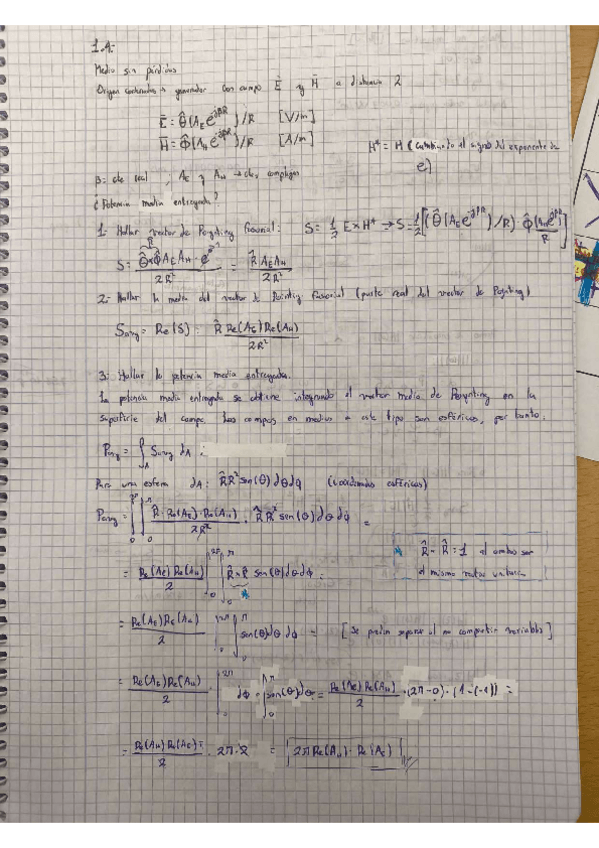 1.A:
Medio sin pérdidas
Origen coordenadas → generador con campo Ē y H̄ a distancia 2
Ē = θ̂(A_E e^{-jβR})/R [V/m]
H̄ = Φ̂(A_H e^{-jβR})/R [A/m]
H* = H (cambiando el signo del exponente de e)
β = cte real , A_E y A_H → ctes complejas
¿Potencia media entregada?
1- Hallar vector de Poynting fasorial: S = 1/2 E x H* → S = 1/2 [(θ̂(A_E e^{-jβR})/R) Φ̂(A_H e^{jβR})/R]
S = θ̂xΦ̂ A_E A_H · e / 2R² = R̂ A_E A_H / 2R²
2- Hallar la media del vector de Pointing fasorial (parte real del vector de Poynting)
S_avg = Re(S) = R̂ Re(A_E) Re(A_H) / 2R²
3- Hallar la potencia media entregada.
La potencia media entregada se obtiene integrando el vector medio de Poynting en la
superficie del campo. Los campos en medios de este tipo son esféricos, por tanto,
P_avg = ∫_A S_avg dA ;
Para una esfera dA: R̂ R² sen(θ) dθ dϕ (coordenadas esféricas)
P_avg = ∫_0^{2π} ∫_0^π R̂ · Re(A_E) · Re(A_H) / 2R² · R̂ R² sen(θ) dθ dϕ =
= Re(A_E) Re(A_H) / 2 ∫_0^{2π} ∫_0^π R̂ · R̂ sen(θ) dθ dϕ =
* R̂ · R̂ = 1 al ambos ser
el mismo vector unitario
= Re(A_E) Re(A_H) / 2 ∫_0^{2π} ∫_0^π sen(θ) dθ dϕ = [se pueden separar al no compartir variables]
= Re(A_E) Re(A_H) / 2 · ∫_0^{2π} dϕ · ∫_0^π sen(θ) dθ = Re(A_E) Re(A_H) / 2 · (2π-0) · (1-(-1)) =
= Re(A_H) Re(A_E) / 2 · 2π · 2 = 2π Re(A_H) · Re(A_E)